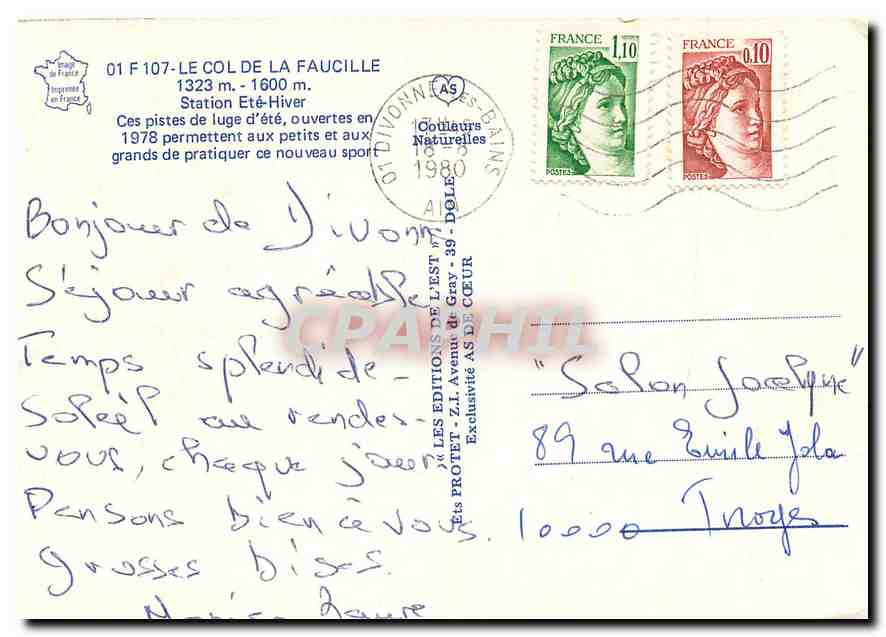 Image
de France
Imprimée
en France
01 F 107 - LE COL DE LA FAUCILLE
1323 m. - 1600 m.
Station Eté-Hiver
Ces pistes de luge d'été, ouvertes en
1978 permettent aux petits et aux
grands de pratiquer ce nouveau sport
AS
Couleurs
Naturelles
01 DIVONNE-LES-BAINS
18-8
1980
AIN
FRANCE
1,10
POSTES
FRANCE
0,10
POSTES
Bonjour de Divonne
Séjour agréable
Temps splendide -
Soleil au rendez-
vous, chaque jour
Pensons bien à vous.
grosses bises.
Laure
« LES EDITIONS DE L'EST »
Ets PROTET - Z.I. Avenue de Gray - 39 - DOLE
Exclusivité AS DE CŒUR
CPAPHIL
"Salon Jocelyne"
89 rue Emile Zola
10000 Troyes